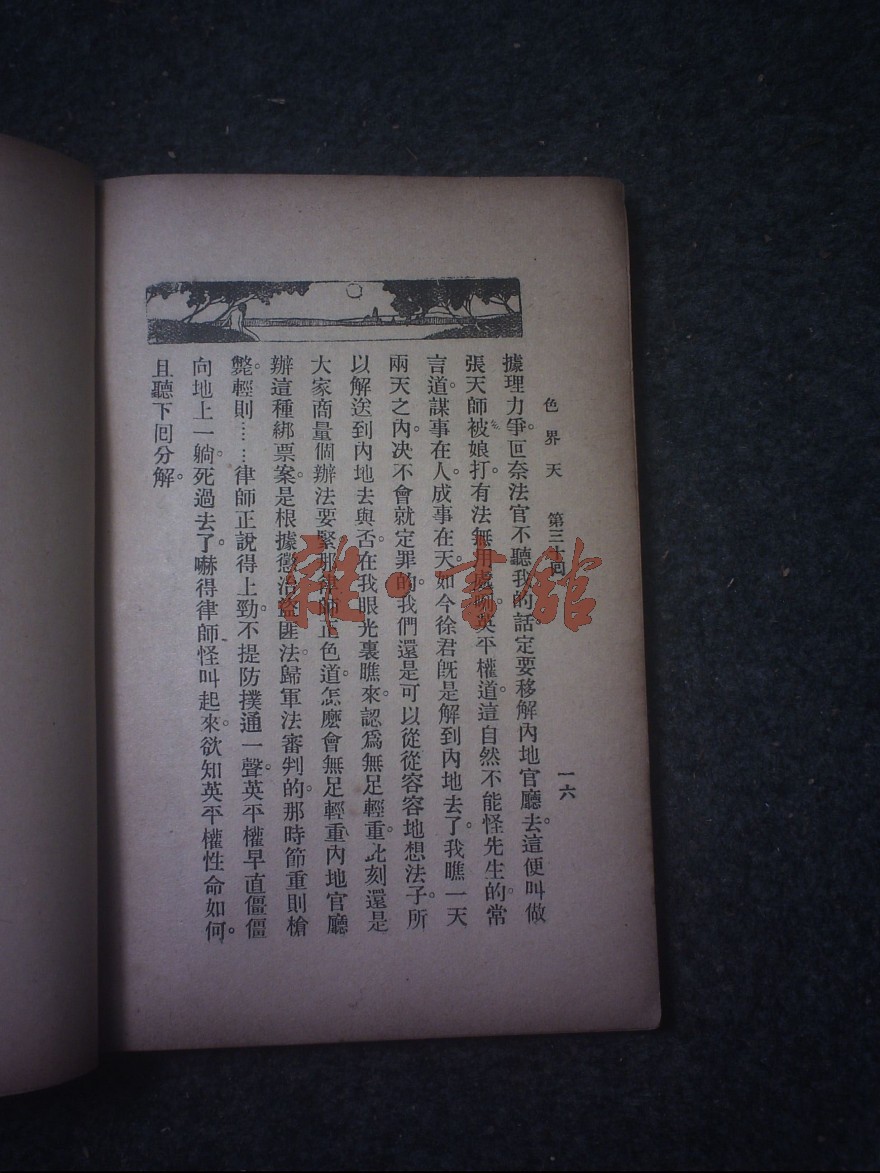 色界天 第三十回 一六
據理力爭。叵奈法官不聽我的話定要移解內地官廳去。這便叫做
張天師被娘打。有法無用處啊。英平權道這自然不能怪先生的。常
言道。謀事在人。成事在天。如今徐君旣是解到內地去了。我瞧一天
兩天之內。决不會就定罪的。我們還是可以從從容容地想法子。所
以解送到內地去與否。在我眼光裏瞧來。認爲無足輕重。此刻還是
大家商量個辦法要緊。那律師正色道。怎麽會無足輕重。內地官廳
辦這種綁票案。是根據懲治盜匪法。歸軍法審判的。那時節重則槍
斃。輕則……律師正說得上勁。不提防撲通一聲。英平權早直僵僵
向地上一躺。死過去了。嚇得律師怪叫起來。欲知英平權性命如何。
且聽下囘分解。
雜·書館